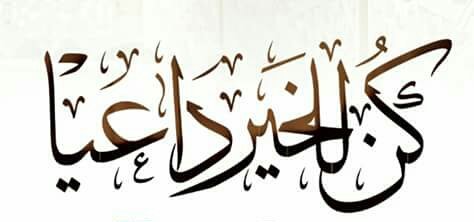 كُن للخَير داعيًا